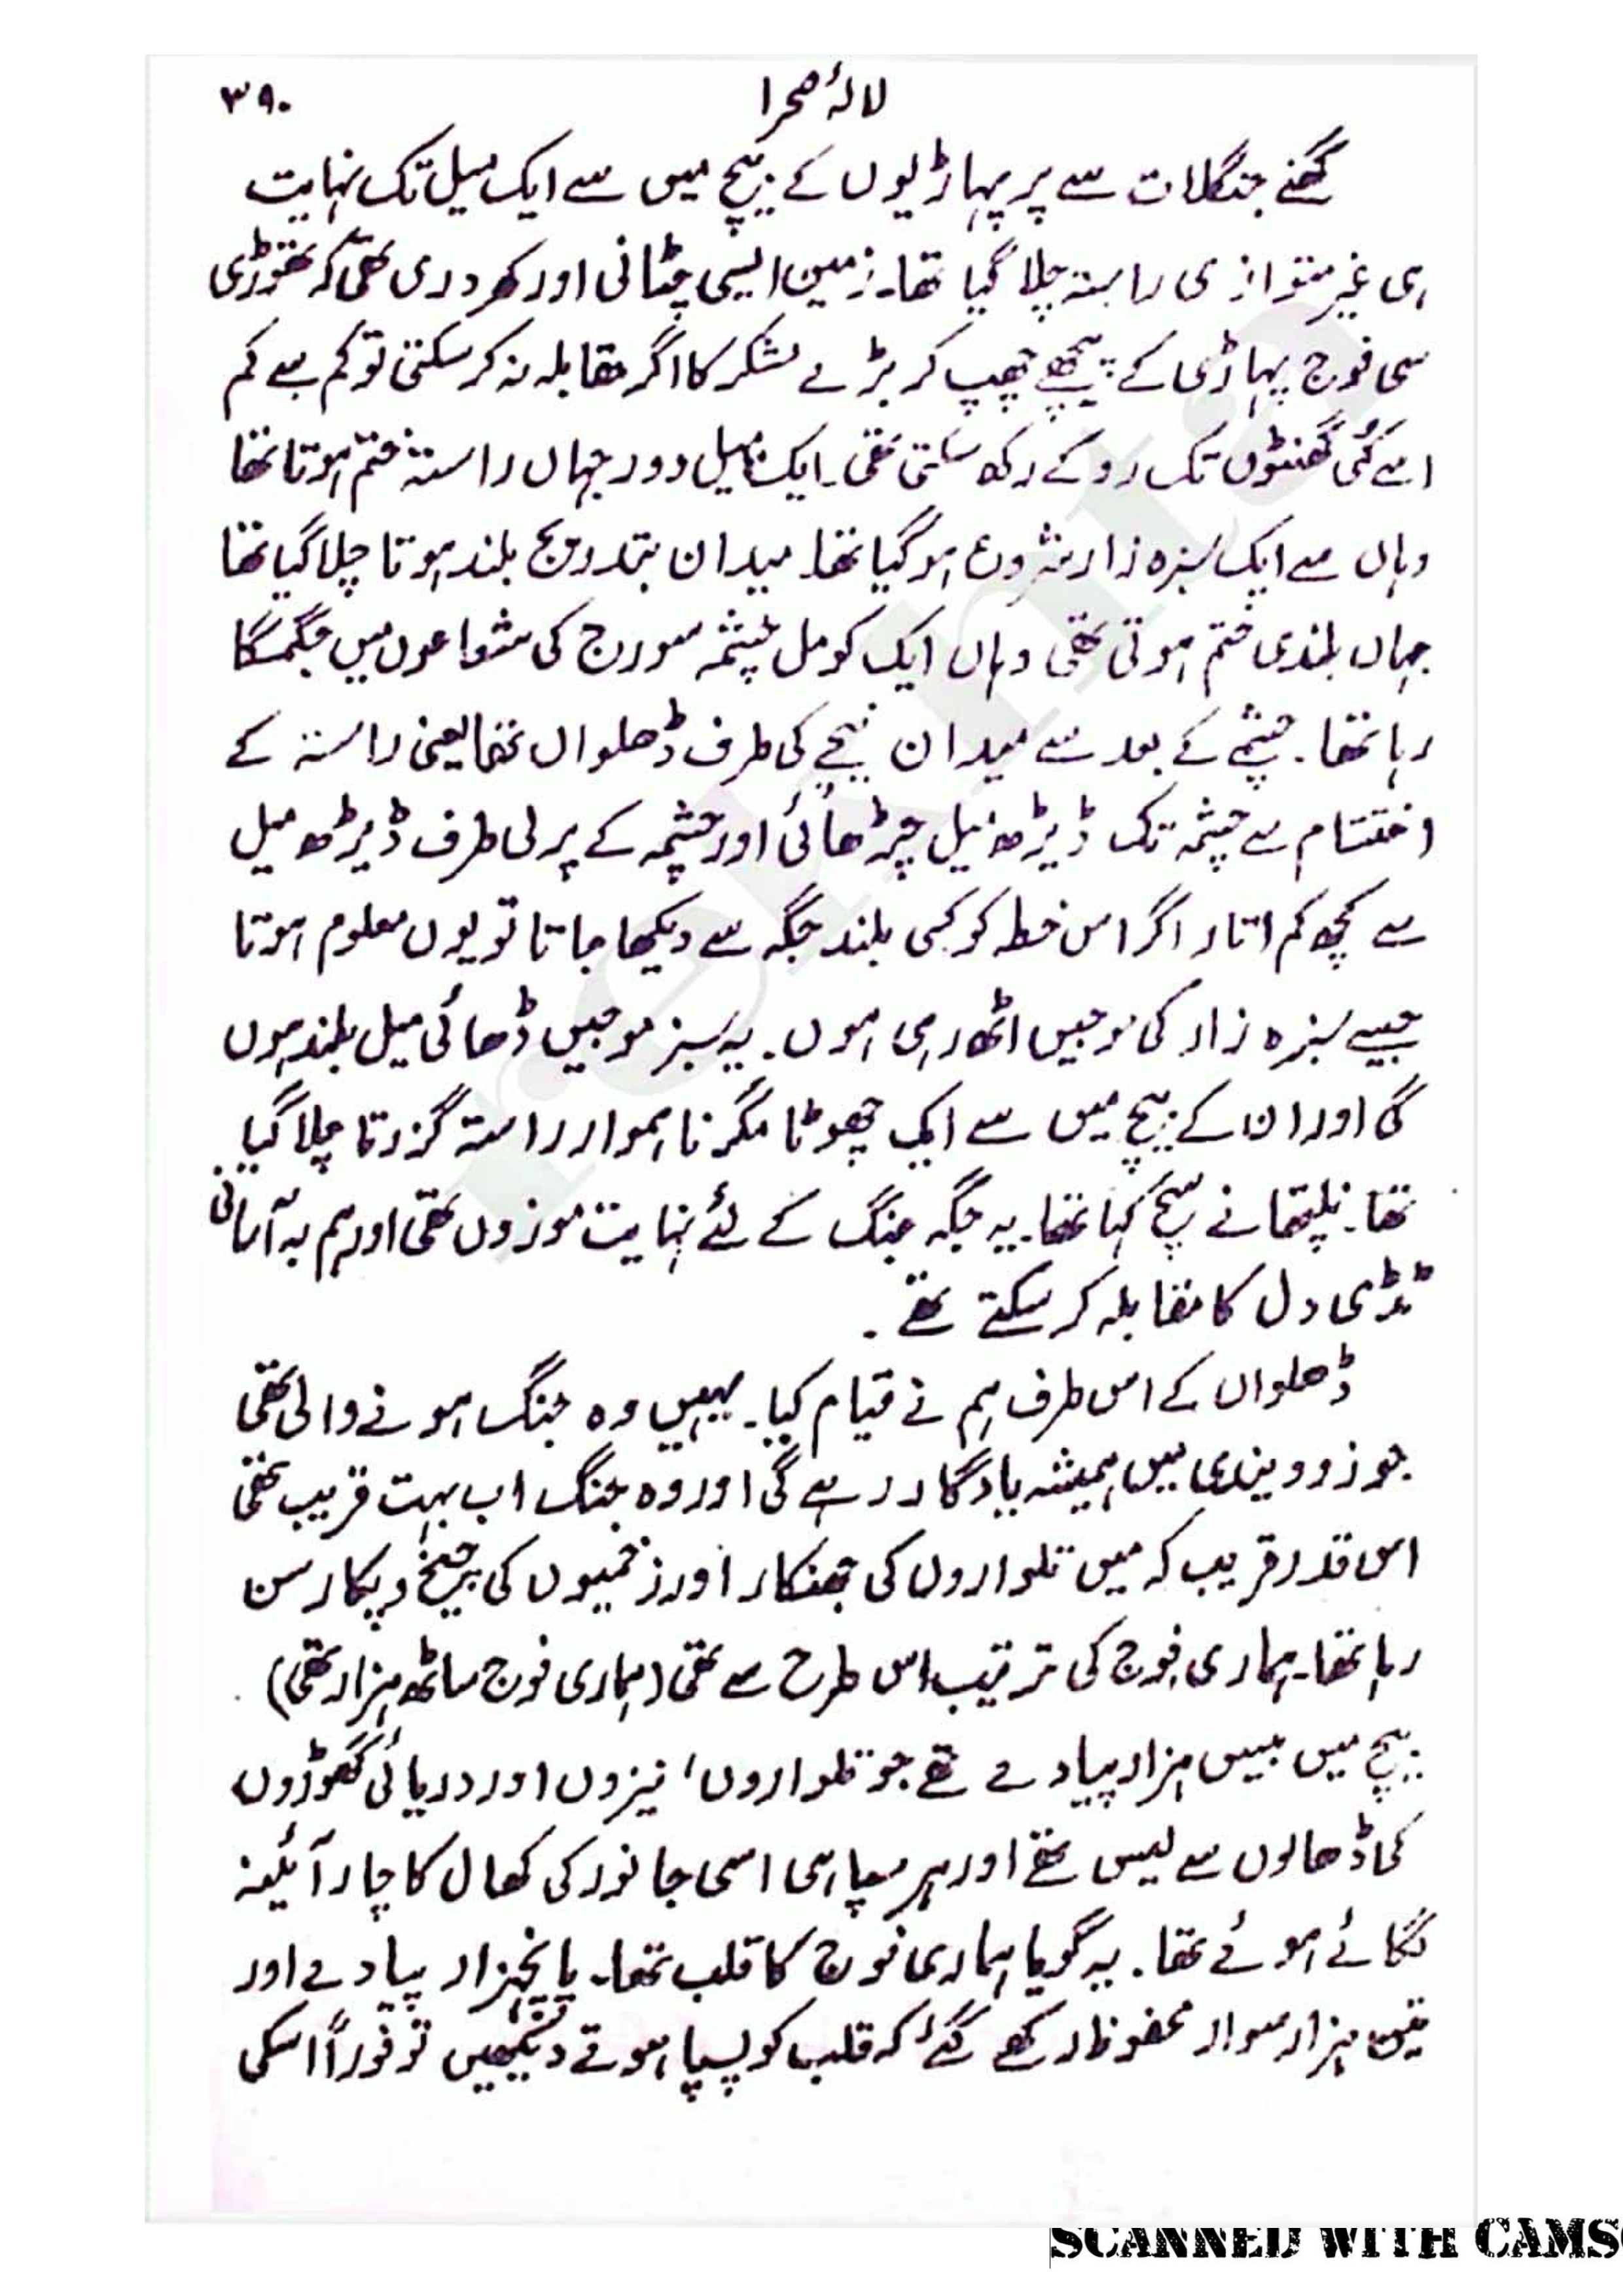 لالۂ صحرا ۳۹۰
گھنے جنگلات سے پر پہاڑیوں کے بیچ میں سے ایک میل تک نہایت
ہی غیر متوازی راستہ چلا گیا تھا۔ زمین ایسی چٹانی اور کھردری تھی کہ تھوڑی
سی فوج پہاڑی کے پیچھے چھپ کر بڑے لشکر کا اگر مقابلہ نہ کر سکتی تو کم سے کم
اسے کئی گھنٹوں تک روکے رکھ سکتی تھی۔ ایک میل دور جہاں راستہ ختم ہوتا تھا
وہاں سے ایک سبزہ زار شروع ہو گیا تھا۔ میدان بتدریج بلند ہوتا چلا گیا تھا
جہاں بلندی ختم ہوتی تھی وہاں ایک کومل چشمہ سورج کی شعاعوں میں جگمگا
رہا تھا۔ چشمے کے بعد سے میدان نیچے کی طرف ڈھلواں تھا یعنی راستہ کے
اختتام سے چشمہ تک ڈیڑھ میل چڑھائی اور چشمہ کے پرلی طرف ڈیڑھ میل
سے کچھ کم اتار اگر اس خطہ کو کسی بلند جگہ سے دیکھا جاتا تو یوں معلوم ہوتا
جیسے سبزہ زار کی موجیں اٹھ رہی ہوں۔ یہ سبز موجیں ڈھائی میل بلند ہوں
گی اور ان کے بیچ میں سے ایک چھوٹا مگر ناہموار راستہ گزرتا چلا گیا
تھا۔ نلپتھا نے سچ کہا تھا۔ یہ جگہ جنگ کے لئے نہایت موزوں تھی اور ہم بہ آسانی
ٹڈی دل کا مقابلہ کر سکتے تھے۔
ڈھلواں کے اس طرف ہم نے قیام کیا۔ یہیں وہ جنگ ہونے والی تھی
جو زووینڈی میں ہمیشہ یادگار رہے گی اور وہ جنگ اب بہت قریب تھی
اس قدر قریب کہ میں تلواروں کی جھنکار اور زخمیوں کی چیخ و پکار سن
رہا تھا۔ ہماری فوج کی ترتیب اس طرح سے تھی (ہماری فوج ساٹھ ہزار تھی)
بیچ میں بیس ہزار پیادے تھے جو تلواروں، نیزوں اور دریائی گھوڑوں
کی ڈھالوں سے لیس تھے اور ہر سپاہی اسی جانور کی کھال کا چار آئینہ
لگائے ہوئے تھا۔ یہ گویا ہماری فوج کا قلب تھا۔ پانچہزار پیادے اور
تین ہزار سوار محفوظ رکھے گئے کہ قلب کو پسپا ہوتے دیکھیں تو فوراً اسکی
rekhta
SCANNED WITH CAMS